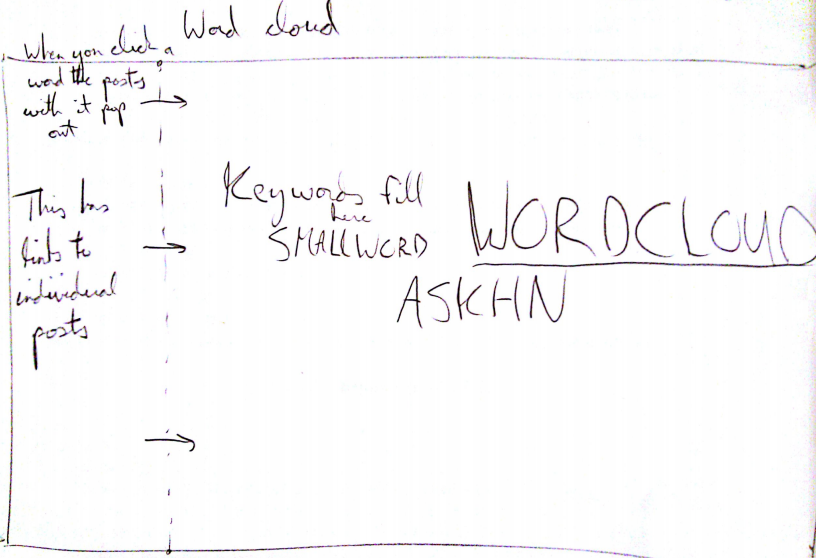 Word cloud
When you click a
word the posts
with it pop
out
This has
links to
individual
posts
Keywords fill
here
SMALLWORD
WORDCLOUD
ASKHN